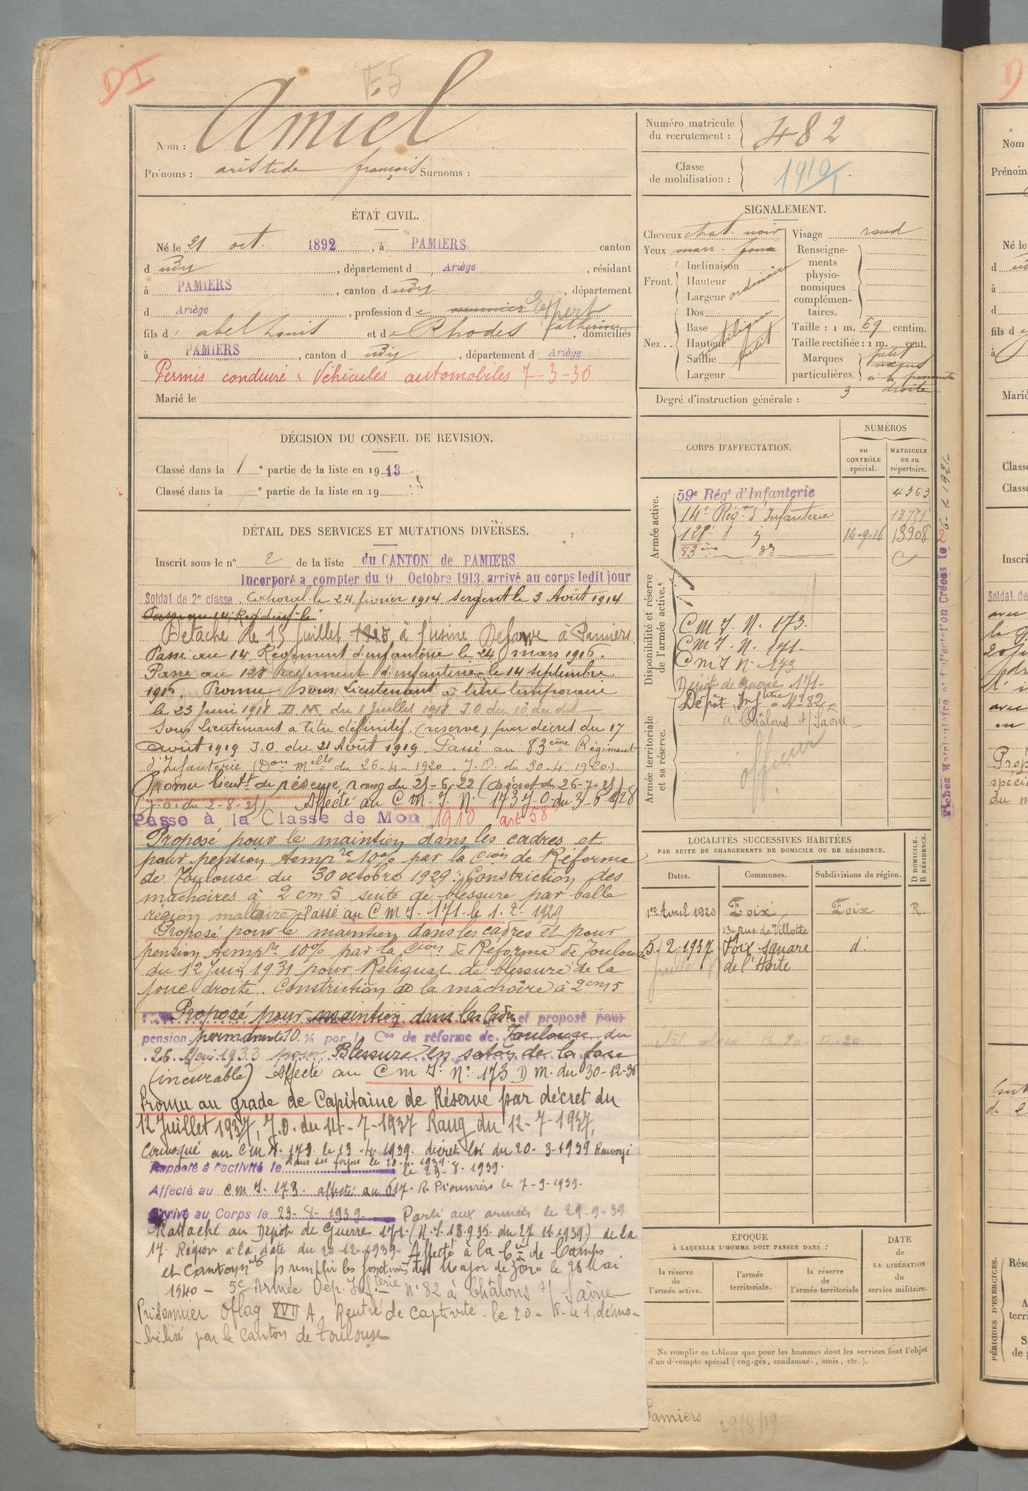 DI
E5
Nom : Amiel
Prénoms : aristide françois Surnoms :
ÉTAT CIVIL.
Né le 21 oct. 1892, à PAMIERS canton
d udit, département d Ariège, résidant
à PAMIERS, canton d udit, département
d Ariège, profession de meunier Expert
fils d' abel Louis et de Rhodes Catherine, domiciliés
à PAMIERS, canton d udit, département d Ariège
Permis conduire « Véhicules automobiles 7-3-36
Marié le
DÉCISION DU CONSEIL DE REVISION.
Classé dans la 1e partie de la liste en 1913
Classé dans la e partie de la liste en 19
DÉTAIL DES SERVICES ET MUTATIONS DIVERSES.
Inscrit sous le n° 2 de la liste du CANTON de PAMIERS
Incorporé a compter du 9 Octobre 1913, arrivé au corps ledit jour
Soldat de 2e classe, Caporal le 24 février 1914 Sergent le 3 Août 1914
Détaché le 13 juillet 1915 à l'usine Deforge à Pamiers
Passé au 14 Régiment d'infanterie le 24 mars 1916.
Passé au 128 Régiment d'infanterie le 14 septembre
1916. Promu Sous Lieutenant à titre temporaire
le 23 Juin 1918 D.M. du 1 Juillet 1918 J.O du 10 du dit
Sous Lieutenant à titre définitif (réserve) par décret du 17
août 1919 J.O. du 21 Août 1919. Passé au 83eme Régiment
d'Infanterie (Don Melle du 26-4-1920. J.O. du 30-4-1920).
Promu lieutt de réserve, rang du 21-6-22 (décret du 26-7-25)
(J.O. du 2-8-25) Affecté au C.M.I. N. 173 J.O. du 3-6-1928
Passé à la Classe de Mon 1910 art 58
Proposé pour le maintien dans les cadres et
pour pension tempre 10% par la Cion de Réforme
de Toulouse du 30 octobre 1929 : Constriction des
machoires à 2 cm 5 suite de blessure par balle
région malaire. Passé au C.M.I. 171 le 1.2.1929
Proposé pour le maintien dans les cadres et pour
pension tempre 10% par la Cion de Réforme de Toulouse
du 12 juin 1931 pour Reliquat de blessure de la
joue droite. Constriction de la machoire à 2cm5
Proposé pour maintien dans les Cadres et proposé pour
pension permanente 10 % par la Con de réforme de Toulouse du
26 Mai 1933 pour Blessure en séton de la face
(incurable) Affecté au C M I N° 173 D M. du 30-12-36
Promu au grade de Capitaine de Réserve par décret du
12 Juillet 1937, J.O. du 14-7-1937 Rang du 12-7-1937,
Convoqué au C.M.I. 173 le 13-4-1939 décret loi du 20-3-1939 Renvoyé
dans ses foyers le 20-4-1939
Rappelé à l'activité le 23-8-1939.
Affecté au C M I. 173. affecté au 617. R. Pionniers le 7-9-1939.
Arrivé au Corps le 23-8-1939. Parti aux armées le 29-9-39
Rattaché au Dépôt de Guerre 171 (N.S. 18.935 du 27.11.1939) de la
17. Région à la date du 20-12-1939. Affecté à la Cie de Camps
et Cantonts pr remplir les fonctions de Major de Zone le 28 Mai
1940 - 5e Armée Dép. Infterie N° 82 à Châlons s/ Saône
Prisonnier Oflag XVII A, Rentré de captivité le 20- démo-
bilisé par le Canton de Toulouse
Numéro matricule
du recrutement : 482
Classe
de mobilisation : 1910
SIGNALEMENT.
Cheveux chat. noir
Yeux marr. foncé
Front. Inclinaison
Hauteur
Largeur ordinaire
Nez .. Dos
Base
Hauteur
Saillie petit
Largeur
Visage rond
Renseigne-
ments
physio-
nomiques
complémen-
taires.
Taille : 1 m. 69 centim.
Taille rectifiée : 1 m. cent.
Marques
particulières.
droite
Degré d'instruction générale : 3
CORPS D'AFFECTATION.
NUMÉROS
au CONTRÔLE spécial.
MATRICULE ou au répertoire.
Armée active.
59e Régt d'Infanterie 4363
14e Regt d'Infanterie
128e 14-9-16 13908
83ème
Disponibilité et réserve
de l'armée active.
C M I N. 173.
C M I. N. 171.
C M I N. 173
Dépôt de Guerre 171.
Dépôt Infterie N° 82
à Châlons s/ Saône
Armée territoriale
et sa réserve.
officier
LOCALITÉS SUCCESSIVES HABITÉES
PAR SUITE DE CHANGEMENTS DE DOMICILE OU DE RÉSIDENCE.
Dates. Communes. Subdivisions de région. D DOMICILE, R RÉSIDENCE.
1er Avril 1920 Foix Foix R.
13 rue de Villote
5-2-1937 Foix Square d°
Pamiers 29/8/19
ÉPOQUE
À LAQUELLE L'HOMME DOIT PASSER DANS :
la réserve
de
l'armée active.
l'armée
territoriale.
la réserve
de
l'armée territoriale
DATE
de
LA LIBÉRATION
du
service militaire.
Ne remplir ce tableau que pour les hommes dont les services font l'objet
d'un décompte spécial (engagés, condamnés, omis, etc.).